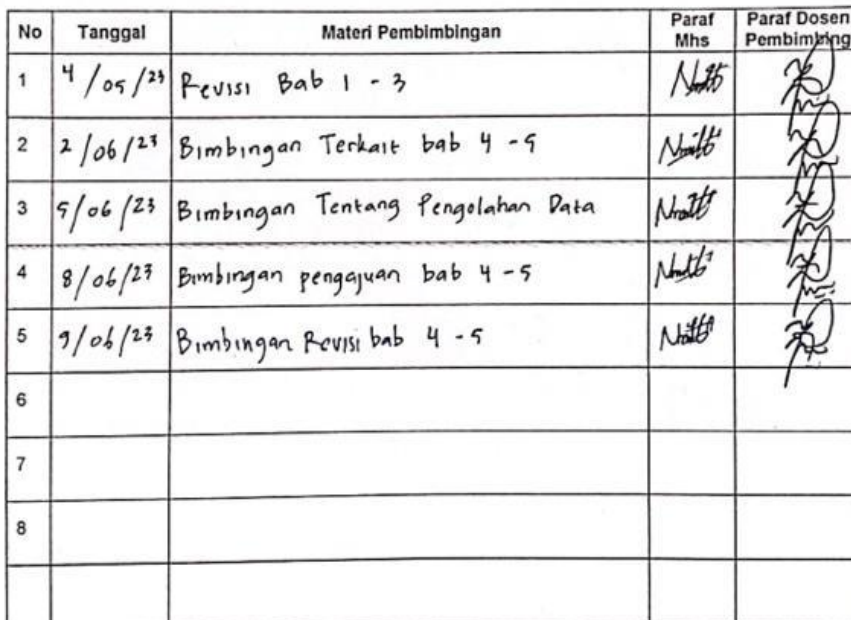 No Tanggal Materi Pembimbingan Paraf Mhs Paraf Dosen Pembimbing
1 4/05/23 Revisi Bab 1 - 3
2 2/06/23 Bimbingan Terkait bab 4 - 5
3 5/06/23 Bimbingan Tentang Pengolahan Data
4 8/06/23 Bimbingan pengajuan bab 4 - 5
5 9/06/23 Bimbingan Revisi bab 4 - 5
6
7
8